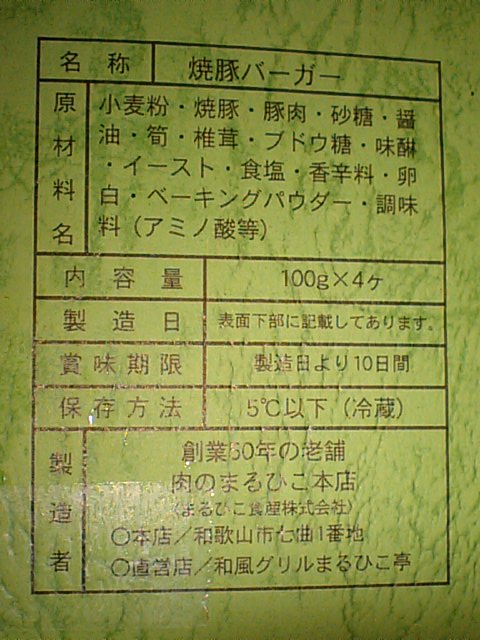 名称 焼豚バーガー
原材料名
小麦粉・焼豚・豚肉・砂糖・醤
油・筍・椎茸・ブドウ糖・味醂
・イースト・食塩・香辛料・卵
白・ベーキングパウダー・調味
料（アミノ酸等）
内容量 100g×4ヶ
製造日 表面下部に記載してあります。
賞味期限 製造日より10日間
保存方法 5℃以下（冷蔵）
製造者
創業60年の老舗
肉のまるひこ本店
（まるひこ食産株式会社）
○本店／和歌山市七曲1番地
○直営店／和風グリルまるひこ亭